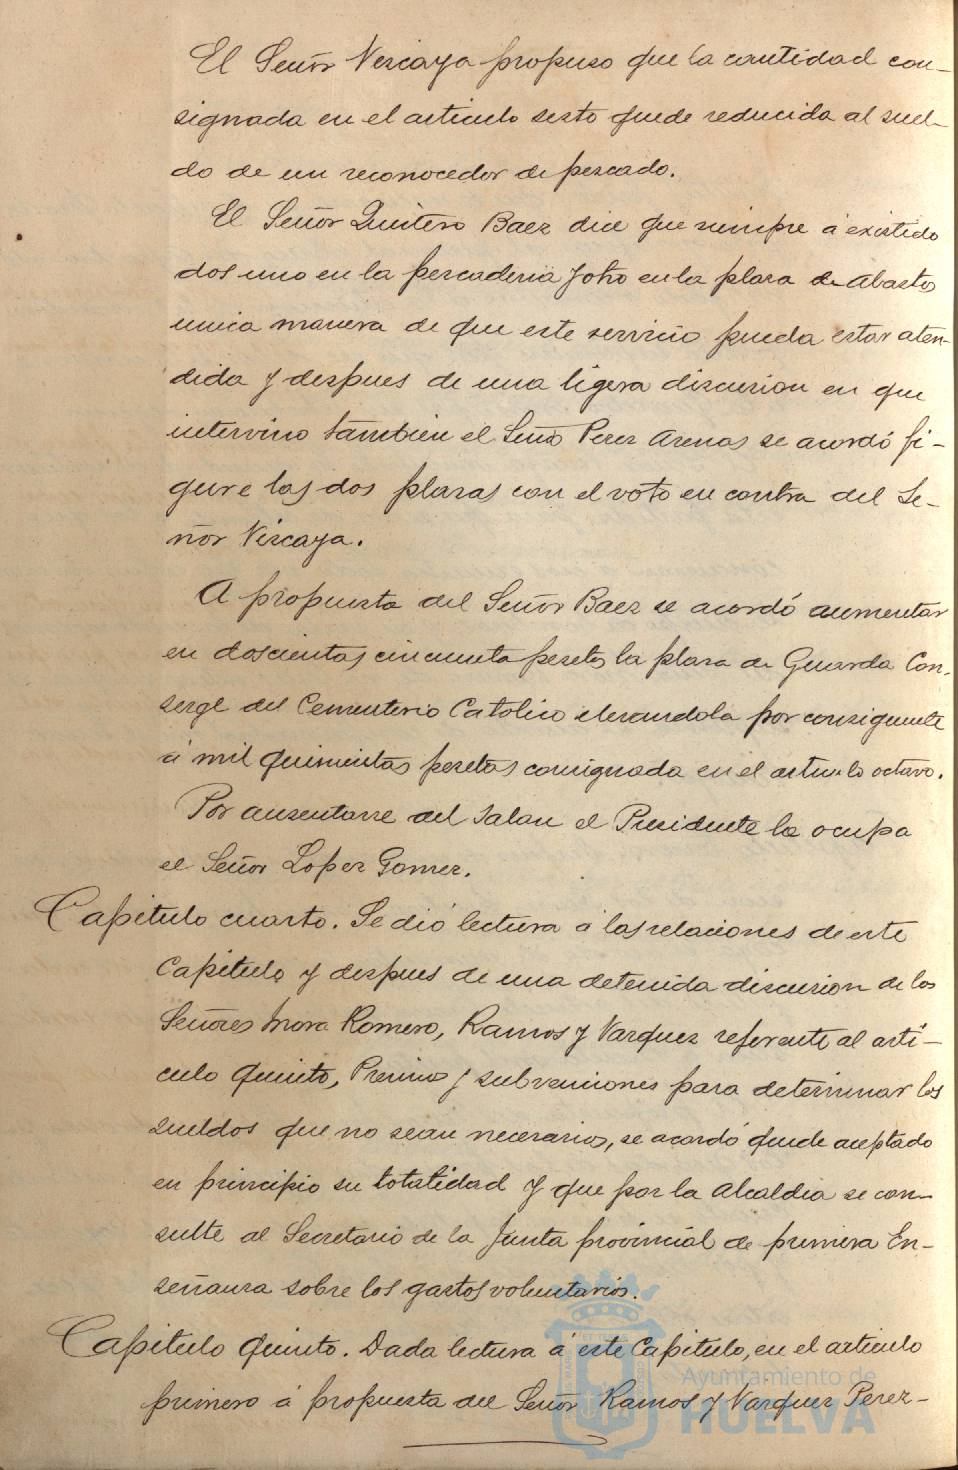 El Señor Vizcaya propuso que la cantidad con-
signada en el articulo sexto quede reducida al suel-
do de un reconocedor de pescado.
El Señor Quintero Baez dice que siempre á existido
dos uno en la pescaderia y otro en la plaza de Abastos
unica manera de que este servicio pueda estar aten-
dida y despues de una ligera discusion en que
intervino tambien el Señor Perez Arenas se acordó fi-
gure las dos plazas con el voto en contra del Se-
ñor Vizcaya.
A propuesta del Señor Baez se acordó aumentar
en doscientas cincuenta pesetas la plaza de Guarda Con-
serge del Cementerio Catolico elevandola por consiguiente
á mil quinientas pesetas consignada en el articulo octavo.
Por ausentarse del Salon el Presidente la ocupa
el Señor Lopez Gomez.
Capitulo cuarto. Se dió lectura á las relaciones de este
Capitulo y despues de una detenida discusion de los
Señores Mora Romero, Ramos y Vazquez referente al arti-
culo quinto, Premios y subvenciones para determinar los
sueldos que no sean necesarios, se acordó quede aceptado
en principio su totalidad y que por la Alcaldia se con-
sulte al Secretario de la Junta provincial de primera En-
señanza sobre los gastos voluntarios.
Capitulo quinto. Dada lectura á este Capitulo, en el articulo
primero á propuesta del Señor Ramos y Vazquez Perez-
Ayuntamiento de
HUELVA